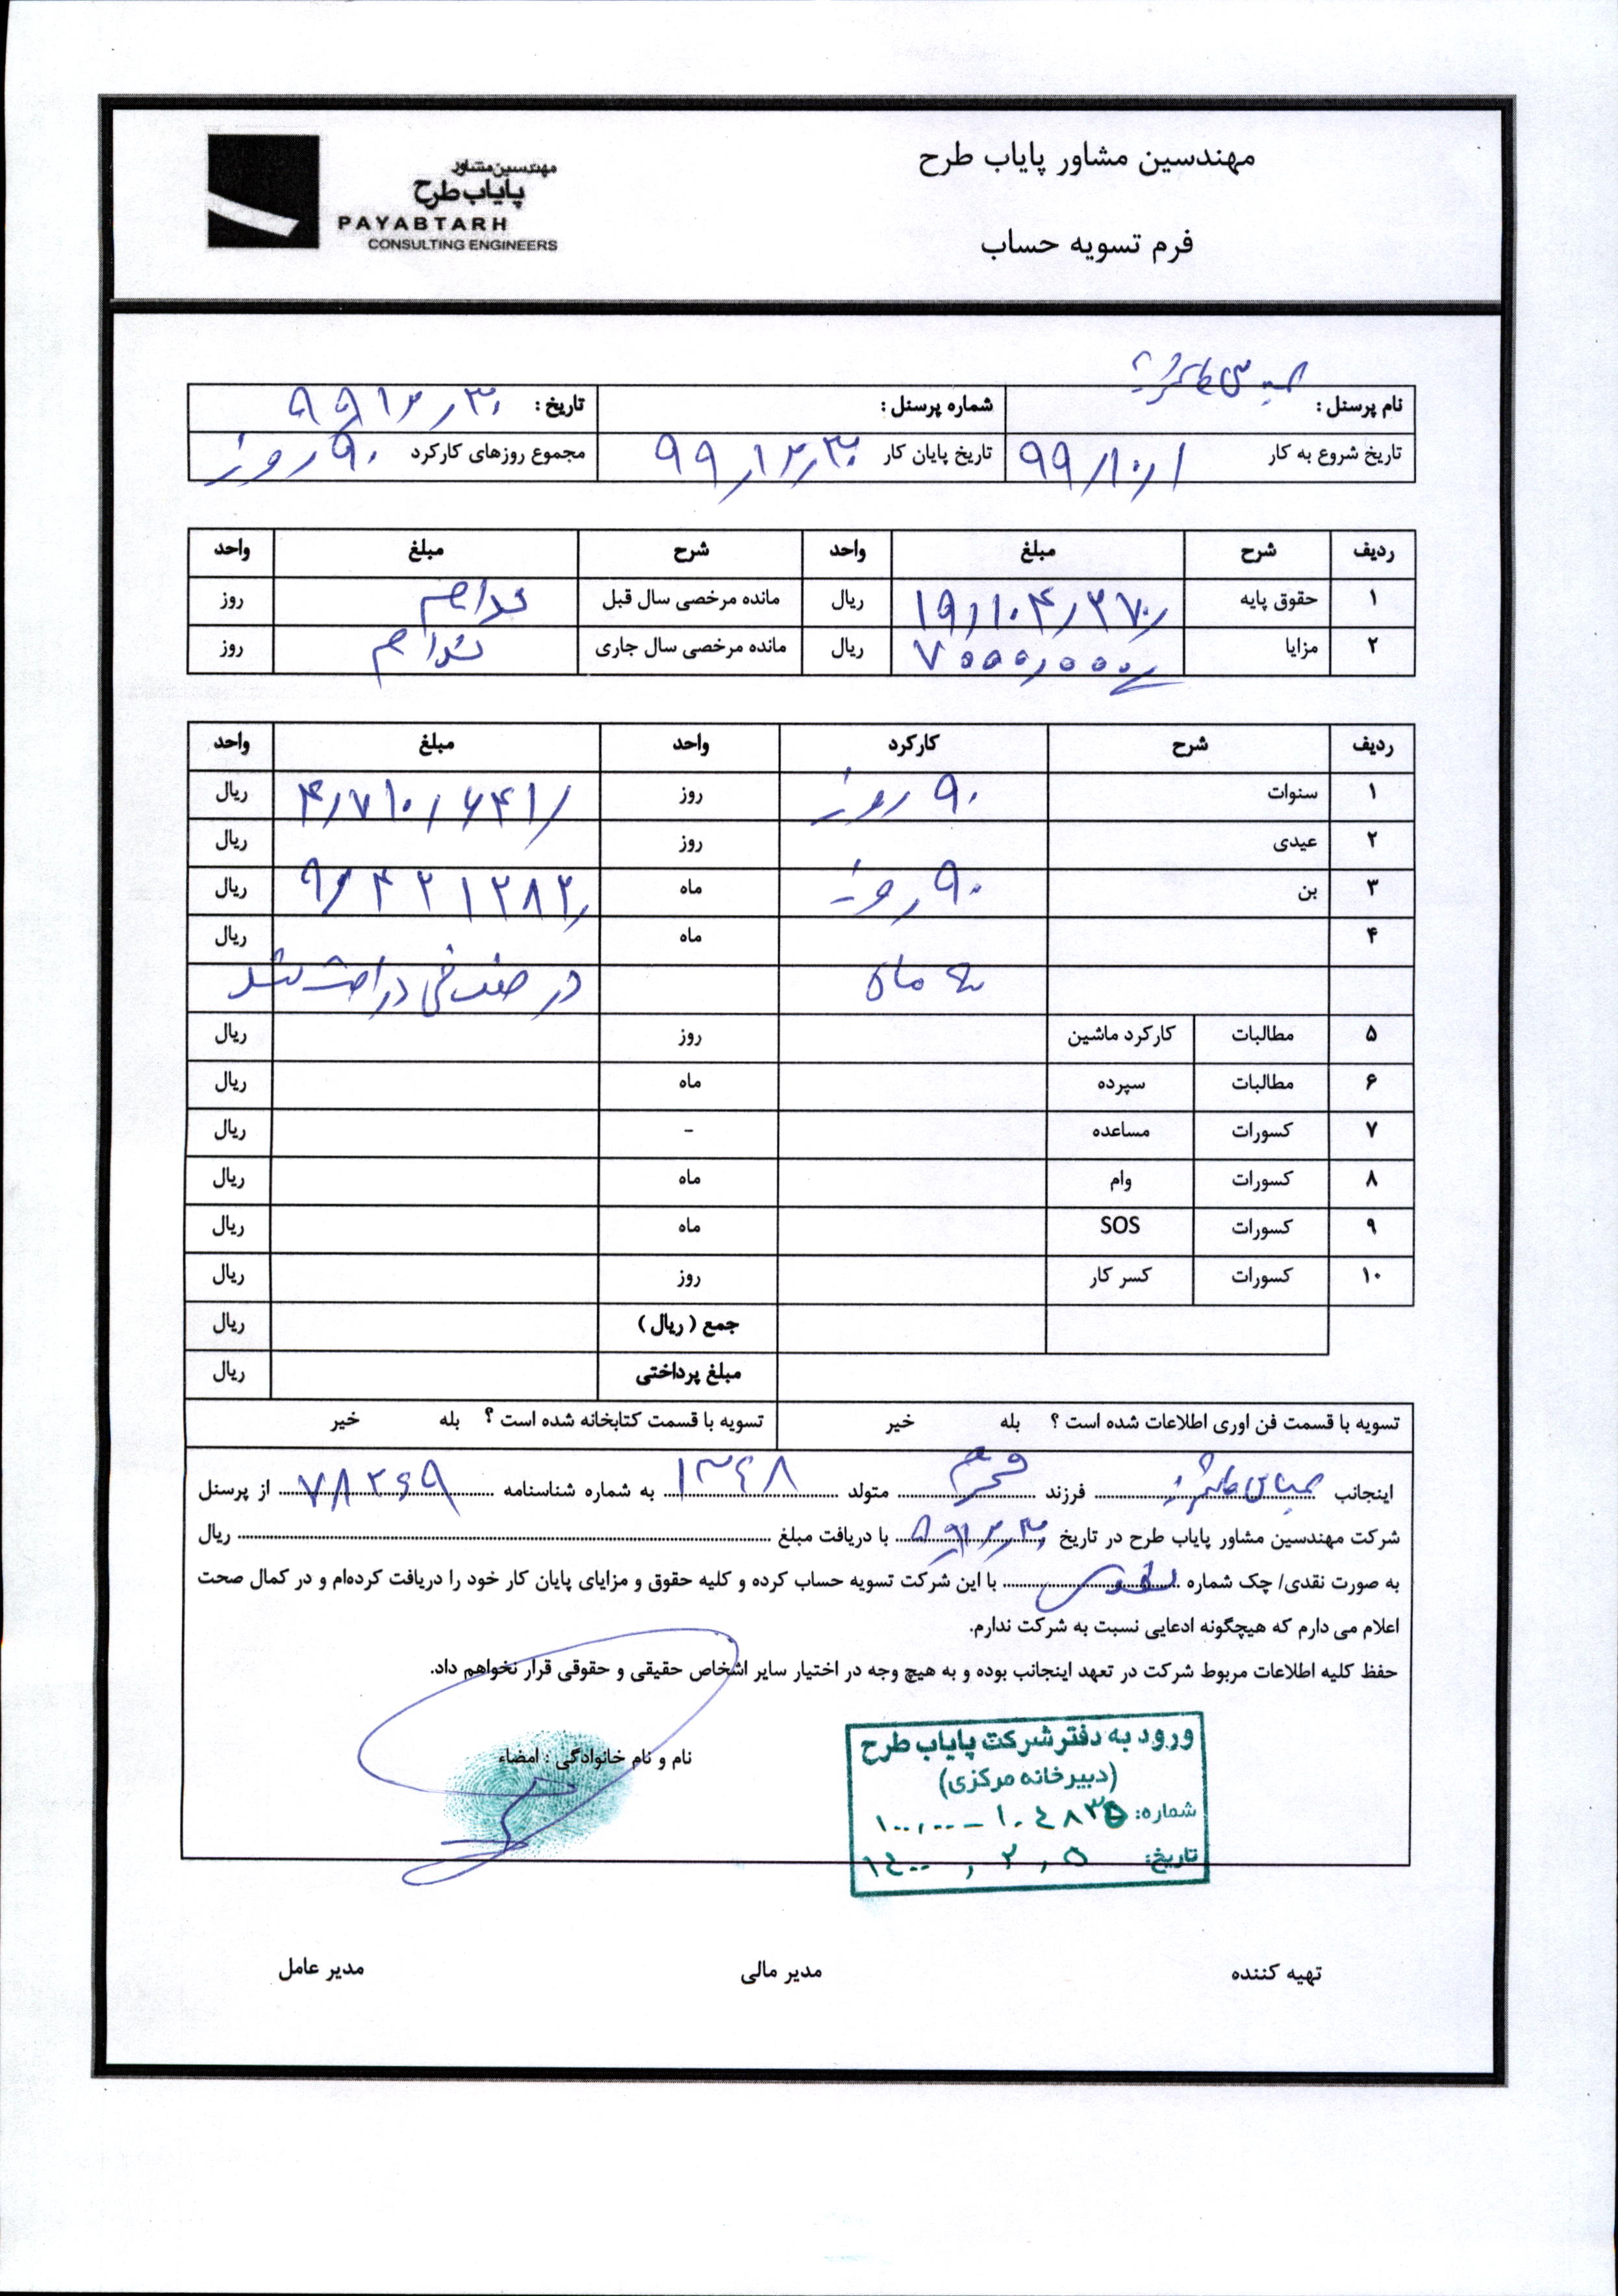 مهندسین مشاور پایاب طرح
مهندسین مشاور
پایاب طرح
PAYABTARH
CONSULTING ENGINEERS
فرم تسویه حساب
نام پرسنل : شماره پرسنل : تاریخ : ۹۹/۱۲/۳۰
تاریخ شروع به کار ۹۹/۱۰/۱ تاریخ پایان کار ۹۹/۱۲/۳۰ مجموع روزهای کارکرد ۹۰ روز
ردیف شرح مبلغ واحد شرح مبلغ واحد
۱ حقوق پایه ۱۹/۱۰۴/۲۷۰/ ریال مانده مرخصی سال قبل ندارم روز
۲ مزایا ۷۰۰۰/۰۰۰ ریال مانده مرخصی سال جاری ندارم روز
ردیف شرح کارکرد واحد مبلغ واحد
۱ سنوات ۹۰ روز روز ۴/۷۱۰/۶۴۱/ ریال
۲ عیدی روز ریال
۳ بن ۹۰ روز ماه ۹/۴۲۱۲۸۲/ ریال
۴ ماه ریال
سه ماه
۵ مطالبات کارکرد ماشین روز ریال
۶ مطالبات سپرده ماه ریال
۷ کسورات مساعده - ریال
۸ کسورات وام ماه ریال
۹ کسورات SOS ماه ریال
۱۰ کسورات کسر کار روز ریال
جمع ( ریال ) ریال
مبلغ پرداختی ریال
تسویه با قسمت فن اوری اطلاعات شده است ؟ بله خیر تسویه با قسمت کتابخانه شده است ؟ بله خیر
اینجانب عباس فرزند محرم متولد ۱۳۴۸ به شماره شناسنامه ۷۸۲۶۹ از پرسنل
شرکت مهندسین مشاور پایاب طرح در تاریخ ۹۹/۱۲/۳۰ با دریافت مبلغ ریال
به صورت نقدی/ چک شماره نقدی با این شرکت تسویه حساب کرده و کلیه حقوق و مزایای پایان کار خود را دریافت کرده‌ام و در کمال صحت
اعلام می دارم که هیچگونه ادعایی نسبت به شرکت ندارم.
حفظ کلیه اطلاعات مربوط شرکت در تعهد اینجانب بوده و به هیچ وجه در اختیار سایر اشخاص حقیقی و حقوقی قرار نخواهم داد.
نام و نام خانوادگی : امضاء
ورود به دفتر شرکت پایاب طرح
(دبیرخانه مرکزی)
شماره: ۱۰۰,۰۰ – ۱۰۴۸۳۵
تاریخ: ۱۴۰۰,۲,۵
تهیه کننده مدیر مالی مدیر عامل